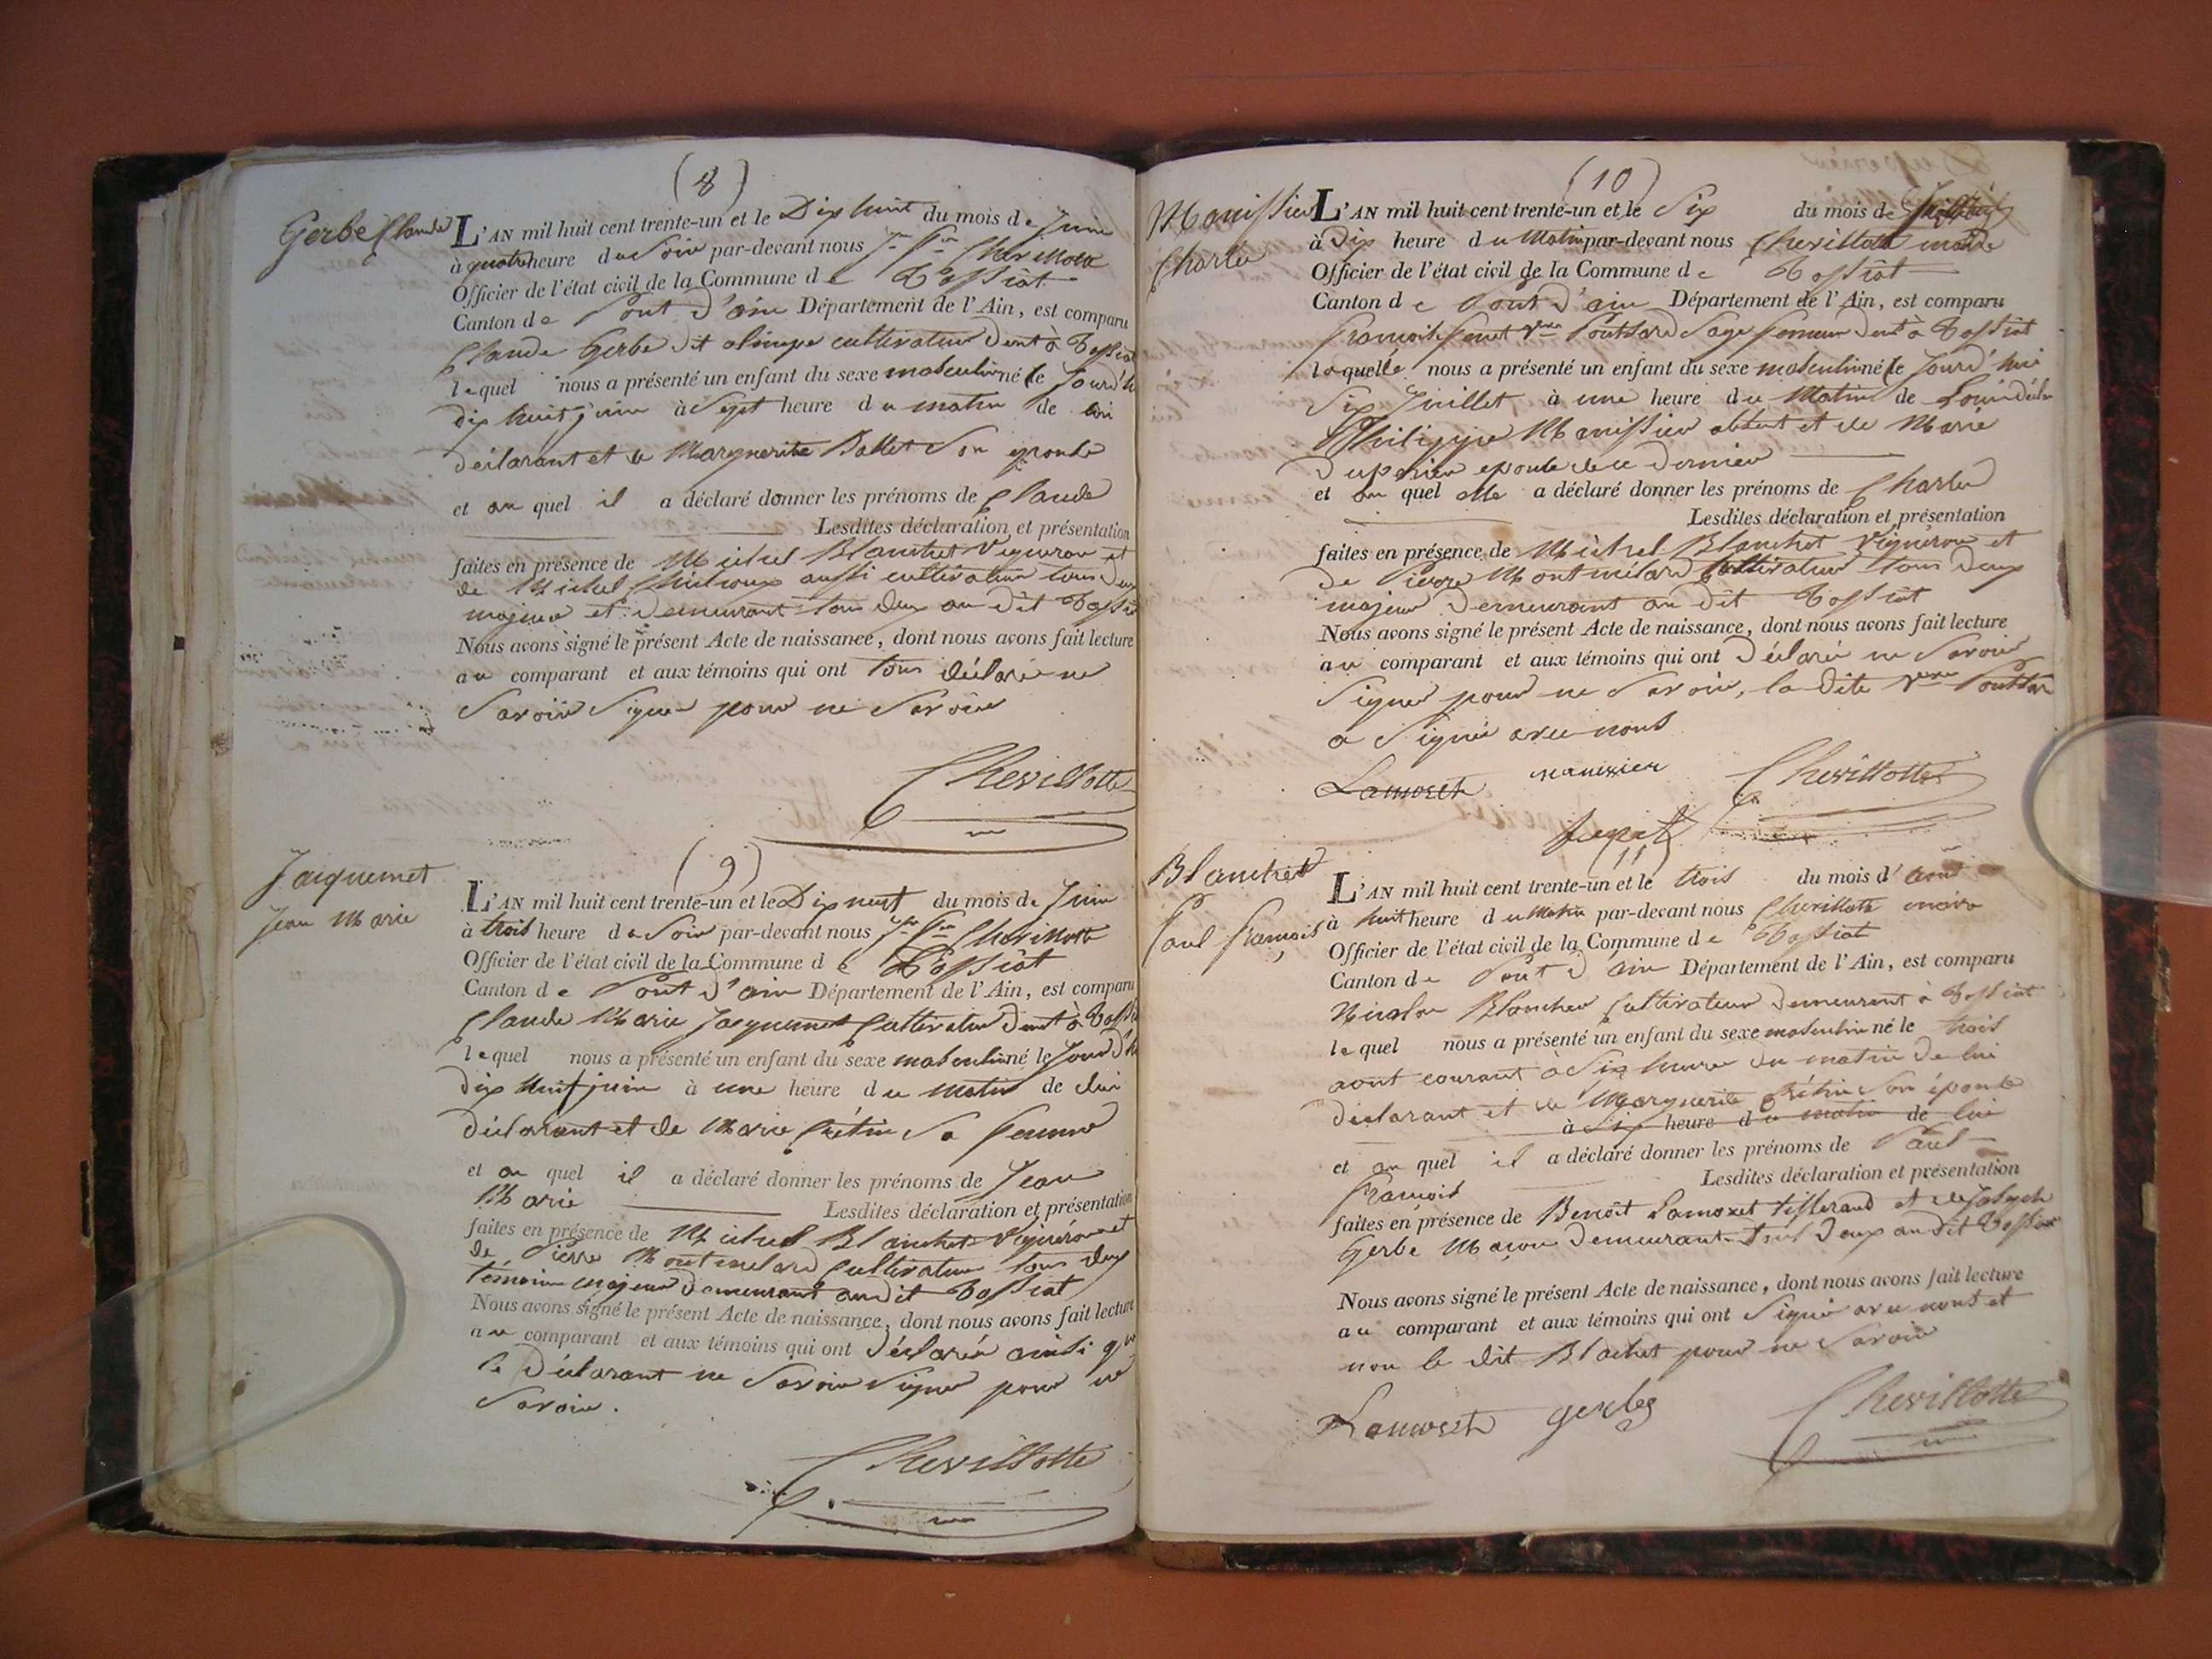 (8)
Gerbe Claude
L'AN mil huit cent trente-un et le Dix huit du mois de Juin
à quatre heure du Soir par-devant nous Chevillotte
Officier de l'état civil de la Commune de Tossiat
Canton de Pont d'ain Département de l'Ain, est comparu
Claude Gerbe dit olimpe cultivateur demt à Tossiat
lequel nous a présenté un enfant du sexe masculin né le Jourd'h
dix huit juin à Sept heure du matin de lui
déclarant et de Marguerite Ballet Son epouse
et au quel il a déclaré donner les prénoms de Claude
Lesdites déclaration et présentation
faites en présence de Michel Blanchet Vigneron et
de Michel aussi cultivateur tous deux
majeur et demeurant tous deux au dit Tossiat
Nous avons signé le présent Acte de naissance, dont nous avons fait lecture
au comparant et aux témoins qui ont tous déclaré ne
Savoir Signer pour ne Savoir
Chevillotte
(9)
Jacquemet
Jean Marie
L'AN mil huit cent trente-un et le Dix neuf du mois de Juin
à trois heure du Soir par-devant nous Chevillotte
Officier de l'état civil de la Commune de Tossiat
Canton de Pont d'ain Département de l'Ain, est comparu
Claude Marie Jacquemet Cultivateur demt à Tossi
lequel nous a présenté un enfant du sexe masculin né le Jourd'h
dix neuf juin à une heure du matin de lui
déclarant et de Marie Crétin Sa femme
et au quel il a déclaré donner les prénoms de Jean
Marie Lesdites déclaration et présentation
faites en présence de Michel Blanchet Vigneron et
de Pierre Montmelard Cultivateur tous deux
témoin majeur demeurant audit Tossiat
Nous avons signé le présent Acte de naissance, dont nous avons fait lecture
au comparant et aux témoins qui ont déclaré ainsi que
le Déclarant ne Savoir Signer pour ne
Savoir.
Chevillotte
(10)
Manissier
Charles
L'AN mil huit cent trente-un et le Six du mois de Juillet
à Dix heure du Matin par-devant nous Chevillotte maire
Officier de l'état civil de la Commune de Tossiat
Canton de Pont d'ain Département de l'Ain, est comparu
Vve Pouttard Sage femme demt à Tossiat
laquelle nous a présenté un enfant du sexe masculin né le Jourd'hui
Six Juillet à une heure du Matin de
Philippe Manissier absent et de Marie
Duperier epouse de ce dernier
et au quel elle a déclaré donner les prénoms de Charles
Lesdites déclaration et présentation
faites en présence de Michel Blanchet Vigneron et
de Pierre Montmelard Cultivateur tous deux
majeur Demeurant au dit Tossiat
Nous avons signé le présent Acte de naissance, dont nous avons fait lecture
au comparant et aux témoins qui ont Déclaré ne Savoir
Signer pour ne Savoir, la dite Vve Pouttar
a Signé avec nous
Lamoret manissier Chevillotte
(11)
Blanchet
Paul françois
L'AN mil huit cent trente-un et le trois du mois d'aout
à huit heure du Matin par-devant nous Chevillotte maire
Officier de l'état civil de la Commune de Tossiat
Canton de Pont d'ain Département de l'Ain, est comparu
Nicolas Blanchet Cultivateur demeurant à Tossiat
lequel nous a présenté un enfant du sexe masculin né le trois
aout courant à Six heure du matin de lui
déclarant et de Marguerite Crétin Son épouse
à Six heure du matin de lui
et au quel il a déclaré donner les prénoms de Paul
françois Lesdites déclaration et présentation
faites en présence de Benoît Lamoret tisserand et de Joseph
Gerbe Maçon Demeurant tous deux au dit Tossiat
Nous avons signé le présent Acte de naissance, dont nous avons fait lecture
au comparant et aux témoins qui ont Signé avec nous et
non le dit Blachet pour ne Savoir
Lamoret gerbe Chevillotte